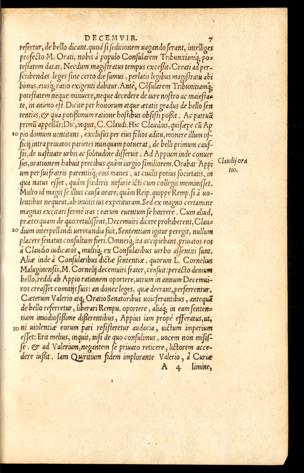 DECEMVIR. 7
refertur, de bello dicant, quod si seditionem negando ferant, intelliges
profecto M. Orati, nobis à populo Consularem Tribunitiamq; po-
testatem datas. Necdum magistratus tempus excessit. Creati ad per-
scribendas leges sine certo die sumus, perlatis legibus magistratu abi
bimus, eiusq; ratio exigenti dabitur. Antè, Cōsularem Tribunitiamq;
potestatem neque minuere, neque decedere de iure nostro ac maiesta-
te, in animo est. Dicite per honorum atque ætatis gradus de bello sen
tentias, & qua potissimum ratione hostibus obsisti possit. Ac patruū
primū appellās: Dic, inquit, C. Claudi. Hic Claudius, quisæpe cū Ap
pio domum uenitans, exclusus per eius filios aditu, monere illum of-
ficij intra priuatos parietes nunquam potuerat, de belli primum cauf-
sis, de uastitate urbis ac solitudine disseruit. Ad Appium inde conuer
sus, orationem habuit precibus quàm iurgio similiorem. Orabat Appi
um per sui fratris parentisq; eius manes, ut ciuilis potius societatis, in
qua natus esset, quàm fœderis nefariè icti cum collegis meminisset.
Multo id magis se illius causa orare, quàm Reip. quippe Remp. si à uo-
lentibus nequeat, ab inuitis ius expeturam. Sed ex magno certamine
magnas excitari fermè iras: earum euentum se horrere. Cum aliud,
præterquam de quo retulissent, Decemuiri dicere prohiberent, Clau-
dium interpellandi uerecundia fuit, Sententiam igitur peregit, nullum
placere senatus consultum fieri. Omnesq; ita accipiebant, priuatos eos
à Claudio iudicatos, multiq; ex Consularibus uerbo assensi sunt.
Aliæ inde à Consularibus dictæ sententiæ. quorum L. Cornelius
Maluginensis, M. Cornelij decemuiri frater, censuit peracto demum
bello, reddi ab Appio rationem oportere, utrum in annum Decemui-
ros creasset comitijs suis: an donec leges, quæ deerant, perferrentur.
Cæterum Valerio atq; Oratio Senatoribus uociferantibus, antequā
de bello referretur, liberari Rempu. oportere, aliaq; in eam senten-
tiam inuidiosissimè disserentibus, Appius iam propè efferatus, ut,
ni uiolentiæ eorum pari resisteretur audacia, uictum imperium
esset: Erit melius, inquit, nisi de quo consulimus, uocem non misis-
se. & ad Valerium, negantem se priuato reticere, lictorem acce-
dere iussit. Iam Quiritium fidem implorante Valerio, à Curiæ
A 4 limine,
Claudij ora
tio.